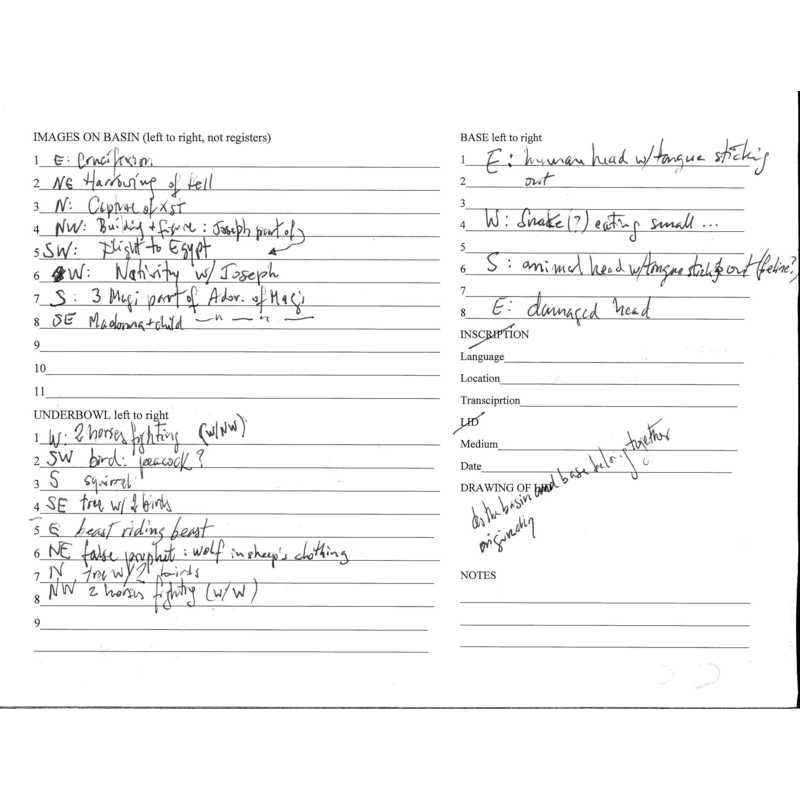 IMAGES ON BASIN (left to right, not registers)
1 E: Crucifixion
2 NE Harrowing of Hell
3 N: Capture of Xst
4 NW: Building + figure: Joseph part of
5 SW: Flight to Egypt
6 W: Nativity w/ Joseph
7 S: 3 Magi part of Ador. of Magi
8 SE Madonna + child — " — " —
9
10
11
UNDERBOWL left to right
1 W: 2 horses fighting (w/NW)
2 SW bird: peacock?
3 S squirrel
4 SE tree w/ 2 birds
5 E beast riding beast
6 NE false prophet: wolf in sheep's clothing
7 N tree w/ 2 birds
8 NW 2 horses fighting (w/W)
9
BASE left to right
1 E: human head w/tongue sticking
2 out
3
4 W: Snake(?) eating small ...
5
6 S: animal head w/tongue sticking out (feline?)
7
8 E: damaged head
INSCRIPTION
Language
Location
Transciprtion
LID
Medium
Date
DRAWING OF
do the basin and base belong together
originally
NOTES